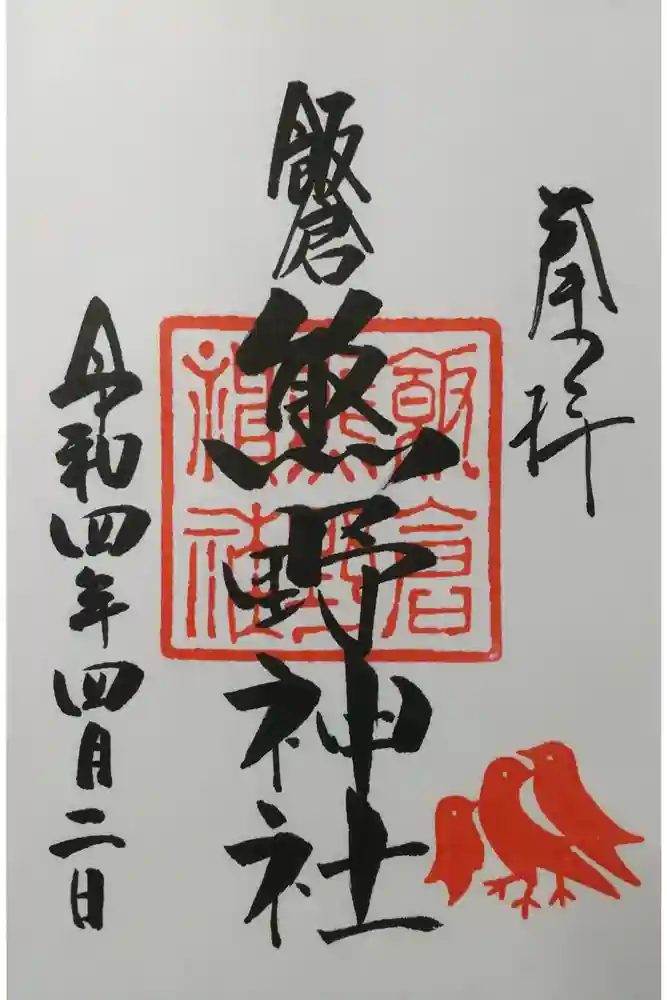 奉拝
飯倉
熊野神社
飯倉
熊野
神社
令和四年四月二日